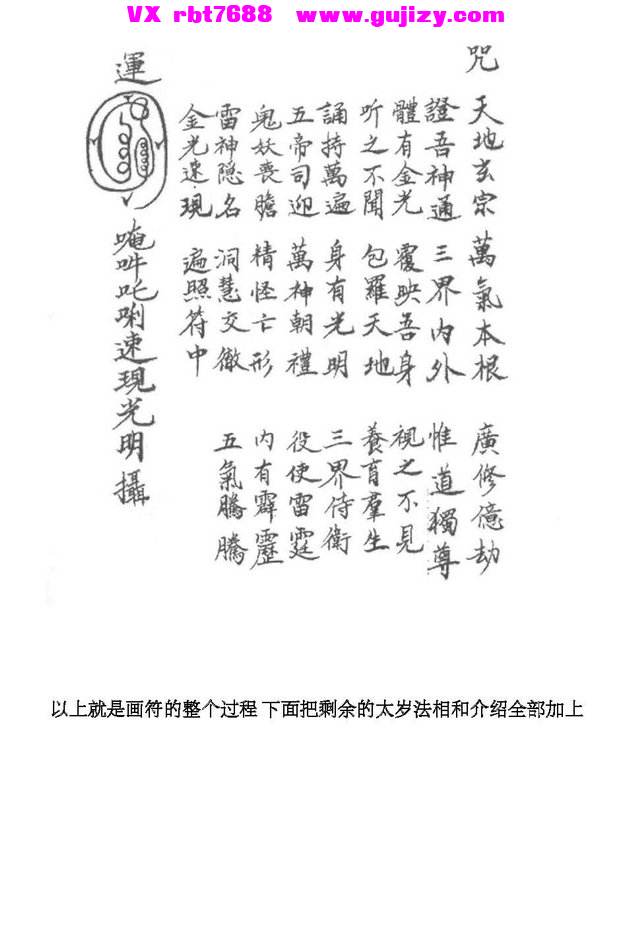 VX rbt7688 www.gujizy.com
咒 天地玄宗 萬氣本根 廣修億劫
證吾神通 三界内外 惟道獨尊
體有金光 覆映吾身 視之不見
听之不聞 包羅天地 養育羣生
誦持萬遍 身有光明 三界侍衛
五帝司迎 萬神朝禮 役使雷霆
鬼妖喪膽 精怪亡形 内有霹靂
雷神隐名 洞慧交徹 五氣騰騰
金光速現 遍照符中
運 唵吽吒唎速現光明攝
以上就是画符的整个过程 下面把剩余的太岁法相和介绍全部加上